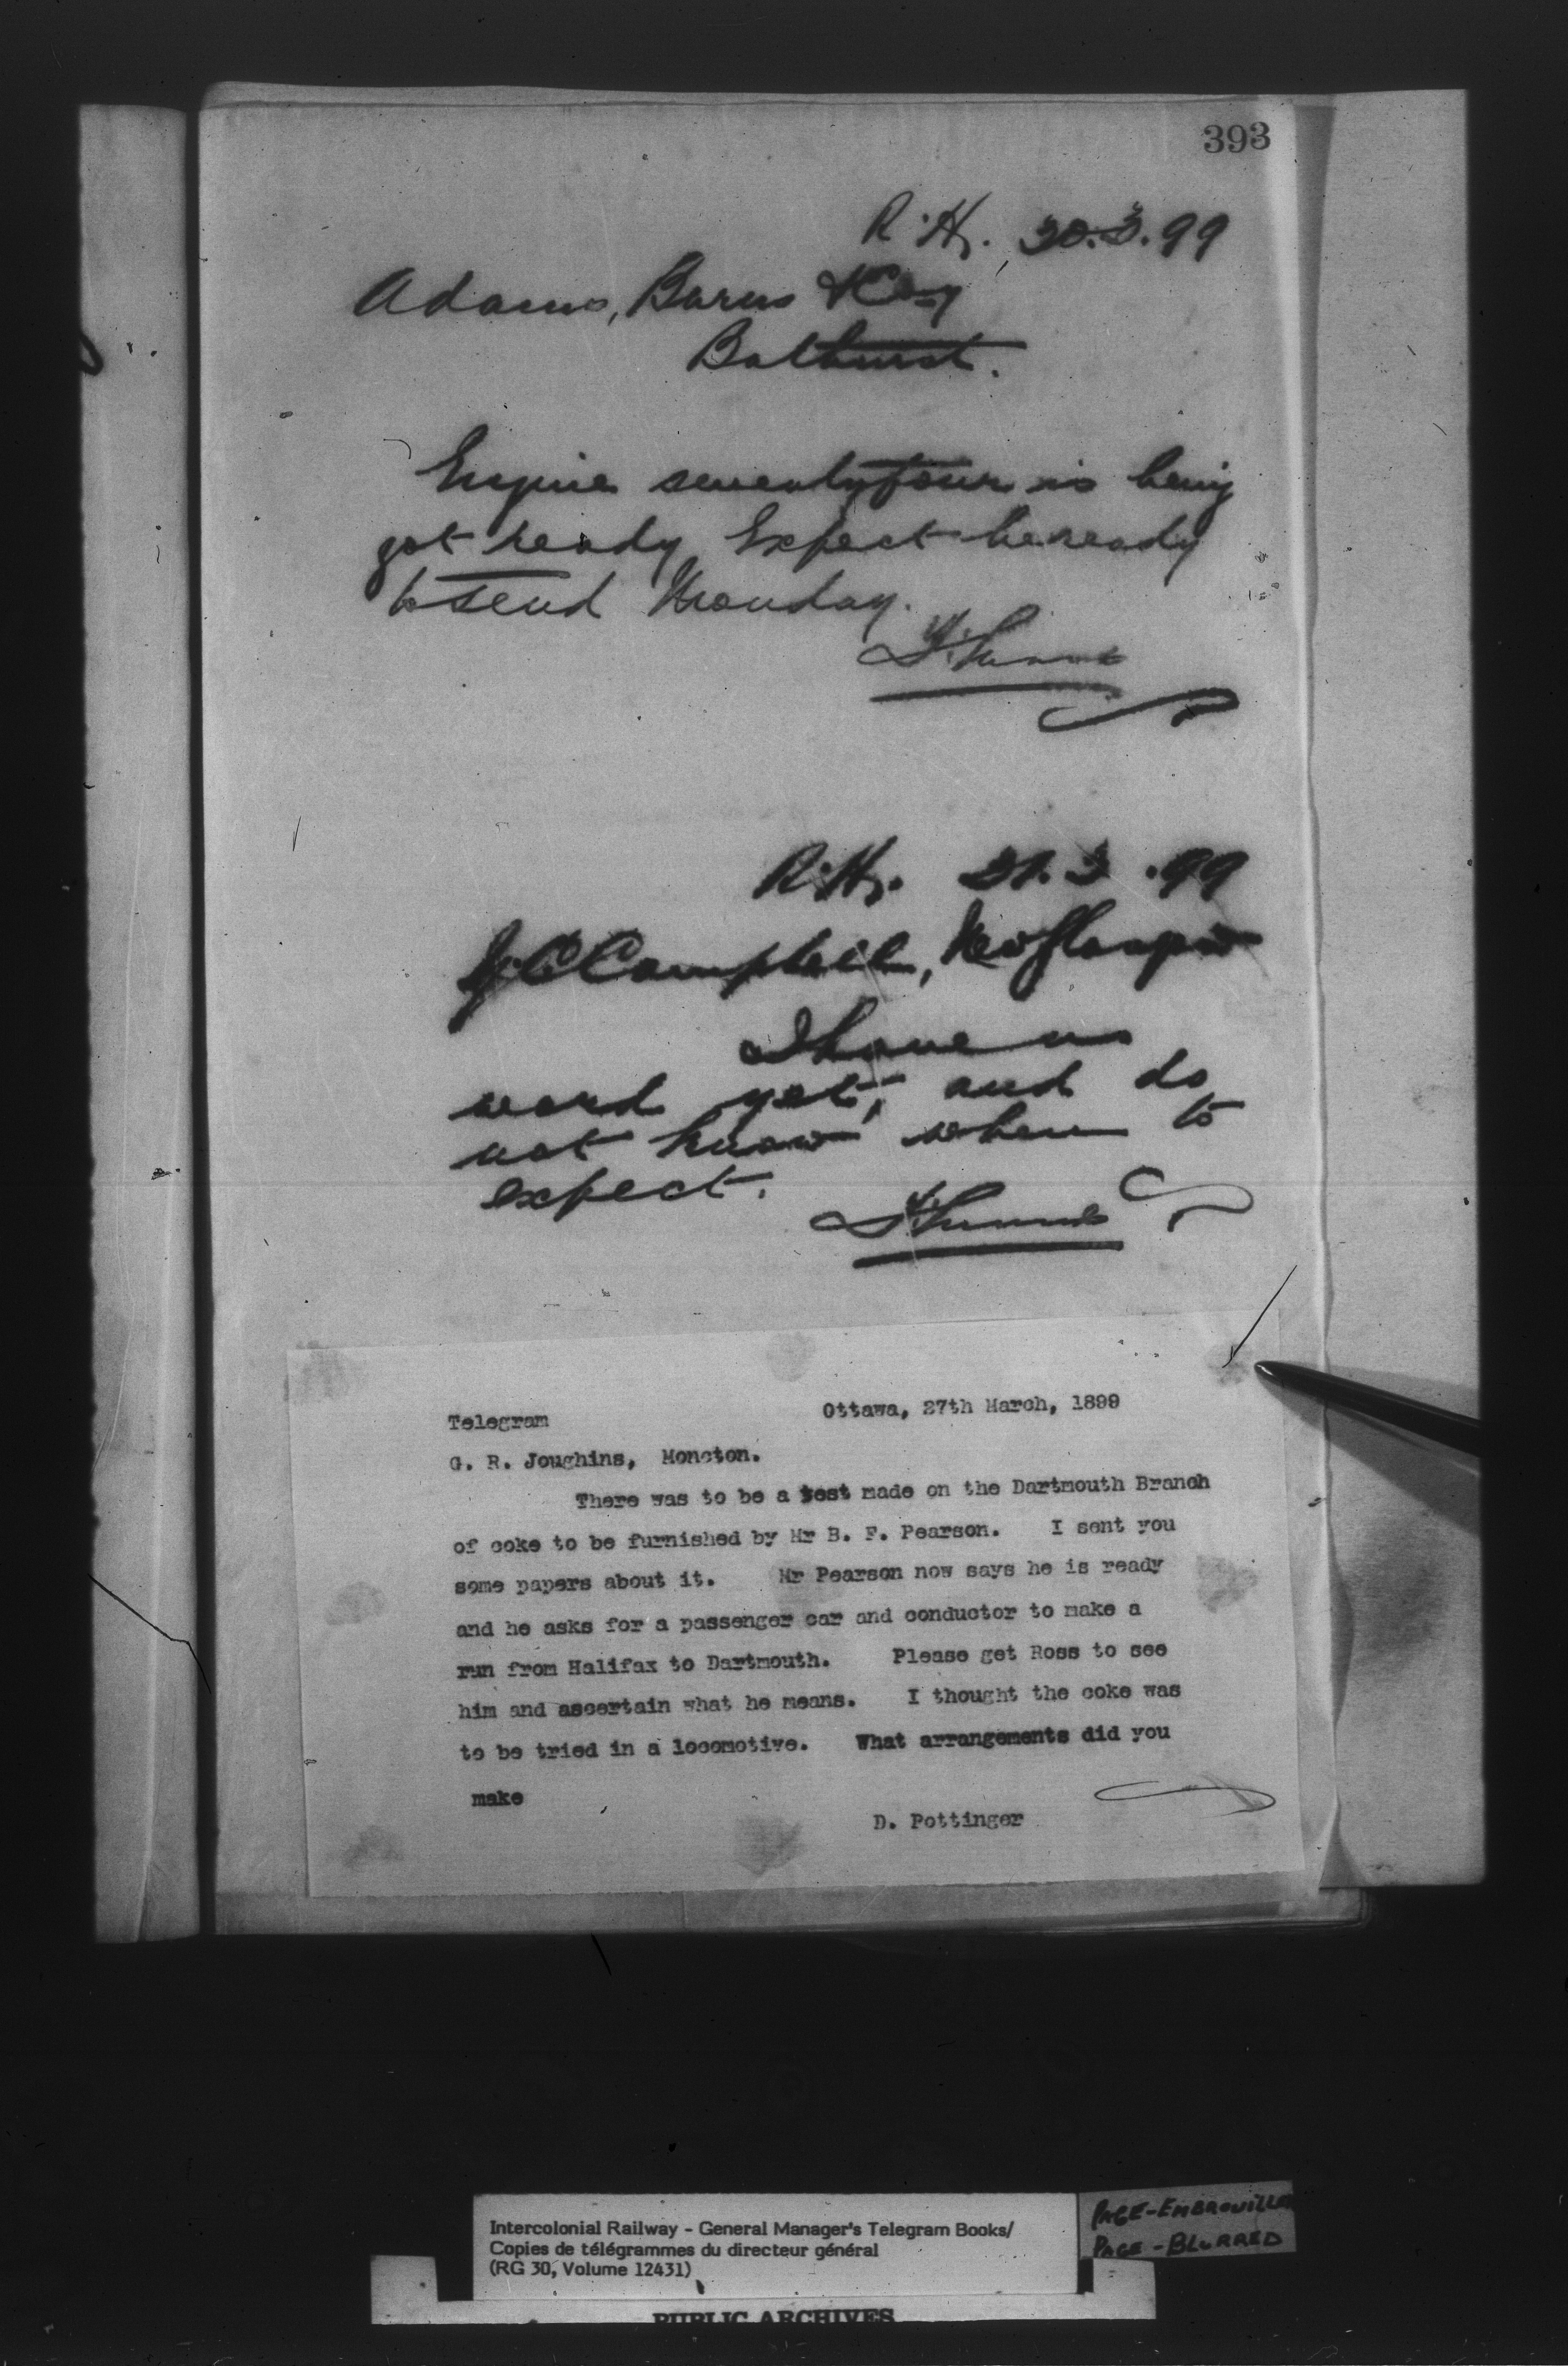 393
R.Hy. 30.3.99
Adams, Burns & Coy
Bathurst.
Engine seventyfour is being
got ready Expect be ready
to send Monday.
R.Hy. 31.3.99
Campbell, New Glasgow
I have no
word yet, and do
not know when to
expect.
Telegram Ottawa, 27th March, 1899
G. R. Joughins, Moncton.
There was to be a test made on the Dartmouth Branch
of coke to be furnished by Mr B. F. Pearson. I sent you
some papers about it. Mr Pearson now says he is ready
and he asks for a passenger car and conductor to make a
run from Halifax to Dartmouth. Please get Ross to see
him and ascertain what he means. I thought the coke was
to be tried in a locomotive. What arrangements did you
make
D. Pottinger
Intercolonial Railway - General Manager's Telegram Books/
Copies de télégrammes du directeur général
(RG 30, Volume 12431)
PAGE-EMBROUILLE
PAGE-BLURRED
PUBLIC ARCHIVES